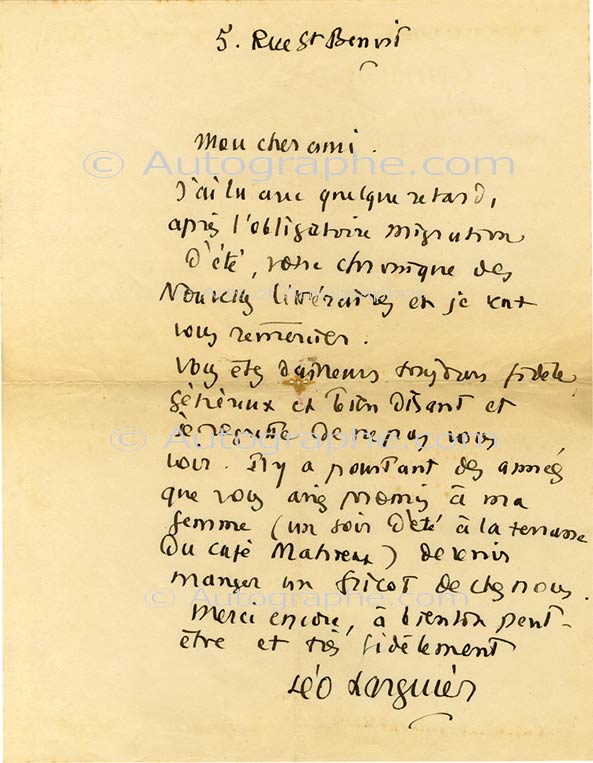 5. Rue St Benoit
Mon cher ami.
© Autographe.com
J'ai lu avec quelque retard,
après l'obligatoire migration
D'été, votre chronique des
Nouvelles littéraires et je veux
vous remercier.
Vous êtes d'ailleurs toujours fidèle,
généreux et bien Disant et
je regrette De ne pas vous
© Autographe.com
voir. Il y a pourtant des années
que vous avez promis à ma
femme (un soir D'été à la terrasse
Du café) de venir
manger un fricot de chez nous.
© Autographe.com
Merci encore, à bientôt peut-
être et très fidèlement
Léo Larguier